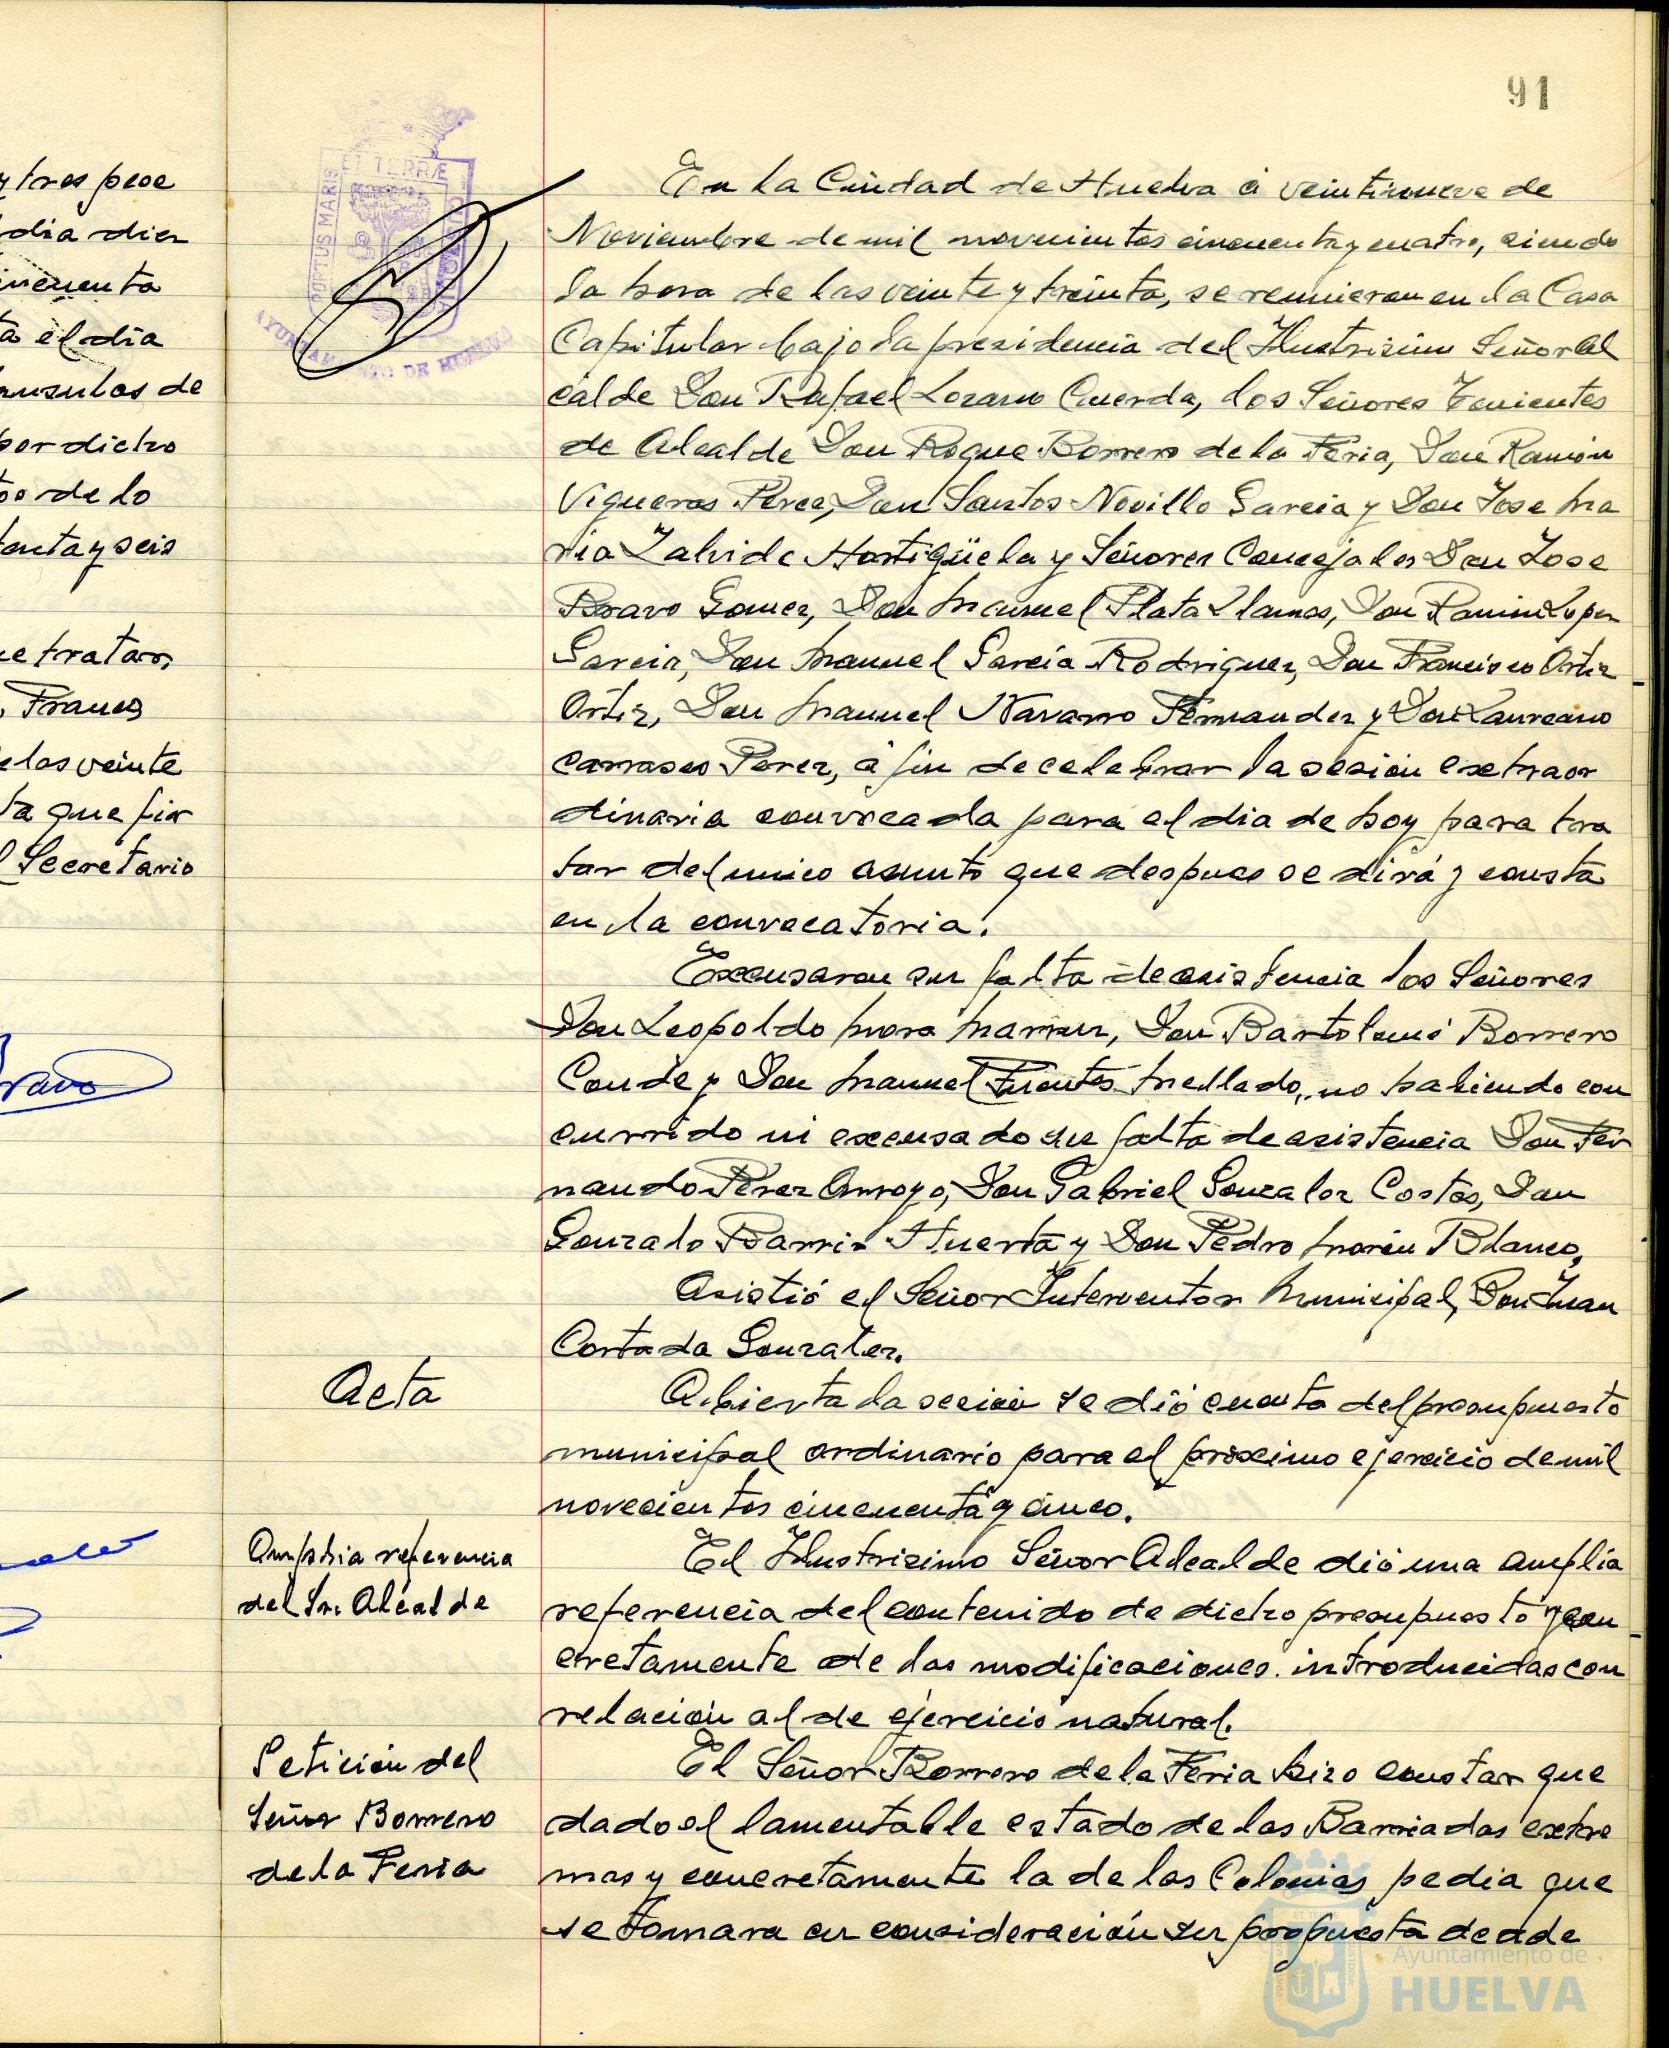 91
y tres pese
dia diez
incuenta
ta el dia
ausulas de
por dicho
too de lo
tenta y seis
ue tratar,
, Franco
e las veinte
ta que fir
l Secretario
ravo
ET TERRÆ
PORTUS MARIS
AYUNTAMIENTO DE HUELVA
En la Ciudad de Huelva a veintinueve de
Noviembre de mil novecientos cincuenta y cuatro, siendo
la hora de las veinte y treinta, se reunieron en la Casa
Capitular bajo la presidencia del Ilustrisimo Señor Al
calde Don Rafael Lozano Cuerda, los Señores Tenientes
de Alcalde Don Roque Borrero de la Feria, Don Ramón
Vigueras Perez, Don Santos Novillo Garcia y Don Jose Ma
ria Zalvide Hortigüela y Señores Concejales Don Jose
Bravo Gomez, Don Manuel Plata Llamas, Don Ramon Lopez
Garcia, Don Manuel Garcia Rodriguez, Don Francisco Ortiz
Ortiz, Don Manuel Navarro Fernandez y Don Laureano
Carrasco Perez, a fin de celebrar la sesión extraor
dinaria convocada para el dia de hoy para tra
tar del unico asunto que despues se dirá y consta
en la convocatoria.
Excusaron su falta de asistencia los Señores
Don Leopoldo Mora Mamen, Don Bartolomé Borrero
Conde y Don Manuel Fuentes Mellado, no habiendo con
currido ni excusado su falta de asistencia Don Fer
nando Perez Arroyo, Don Gabriel Gonzalez Costas, Don
Gonzalo Barris Huerta y Don Pedro Morón Blanco,
Asistió el Señor Interventor Municipal, Don Juan
Cortada Gonzalez.
Acta
Abierta la sesión se dió cuenta del presupuesto
municipal ordinario para el próximo ejercicio de mil
novecientos cincuenta y cinco.
Amplia referencia
del Sr. Alcalde
El Ilustrisimo Señor Alcalde dió una amplia
referencia del contenido de dicho presupuesto y con
cretamente de las modificaciones introducidas con
relación al de ejercicio natural.
Petición del
Señor Borrero
de la Feria
El Señor Borrero de la Feria hizo constar que
dado el lamentable estado de las Barriadas extre
mas y concretamente la de las Colonias pedia que
se tomara en consideración su propuesta desde
Ayuntamiento de
HUELVA